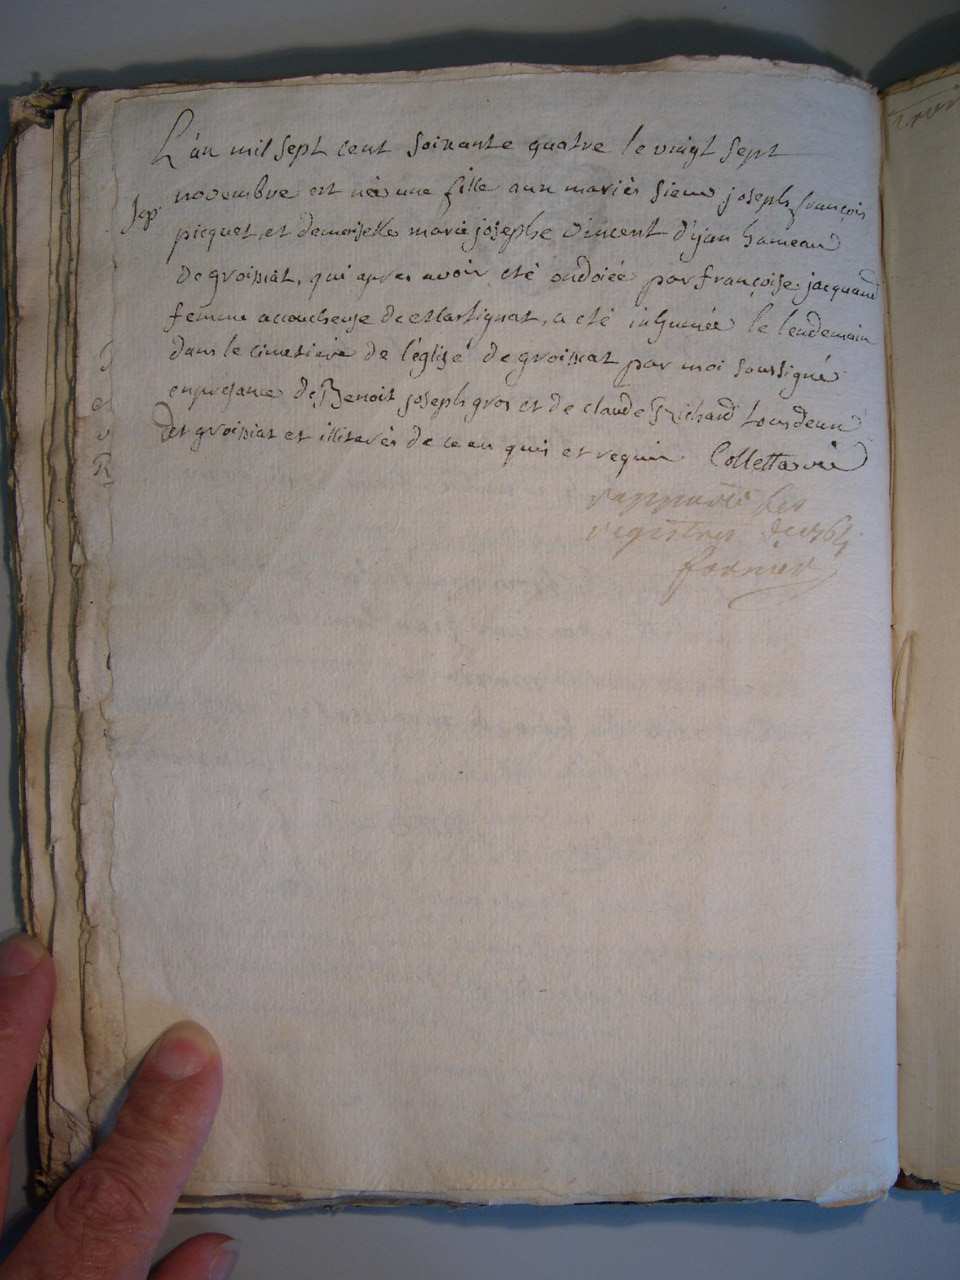 L'an mil sept cent soixante quatre le vingt sept
novembre est née une fille aux mariés sieur joseph françois
Sep.
picquet, et demoiselle marie josephe vincent d'ijan hameau
de groissiat, qui apres avoir eté ondoiée par françoise jacquand
femme accoucheuse de et Martignat, a eté inhumée le lendemain
dans le cimetiere de l'églisé de groissiat par moi soussigné
en présance de Benoit joseph gros et de claude Richard tous deux
det groissiat et illiterés de ce en quis et requis Colletta vic
rapporté sur
registres de 1764
fornier